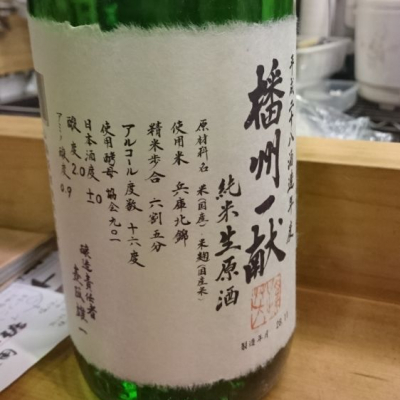 平成二十八酒造年度
播州一献
純米生原酒
原材料名 米(国産)・米麹(国産米)
使用米 兵庫北錦
精米歩合 六割五分
アルコール度数 十六度
使用酵母 協会九〇一
日本酒度 ±0
酸度 2.0
アミノ酸度 0.9
醸造責任者
製造年月